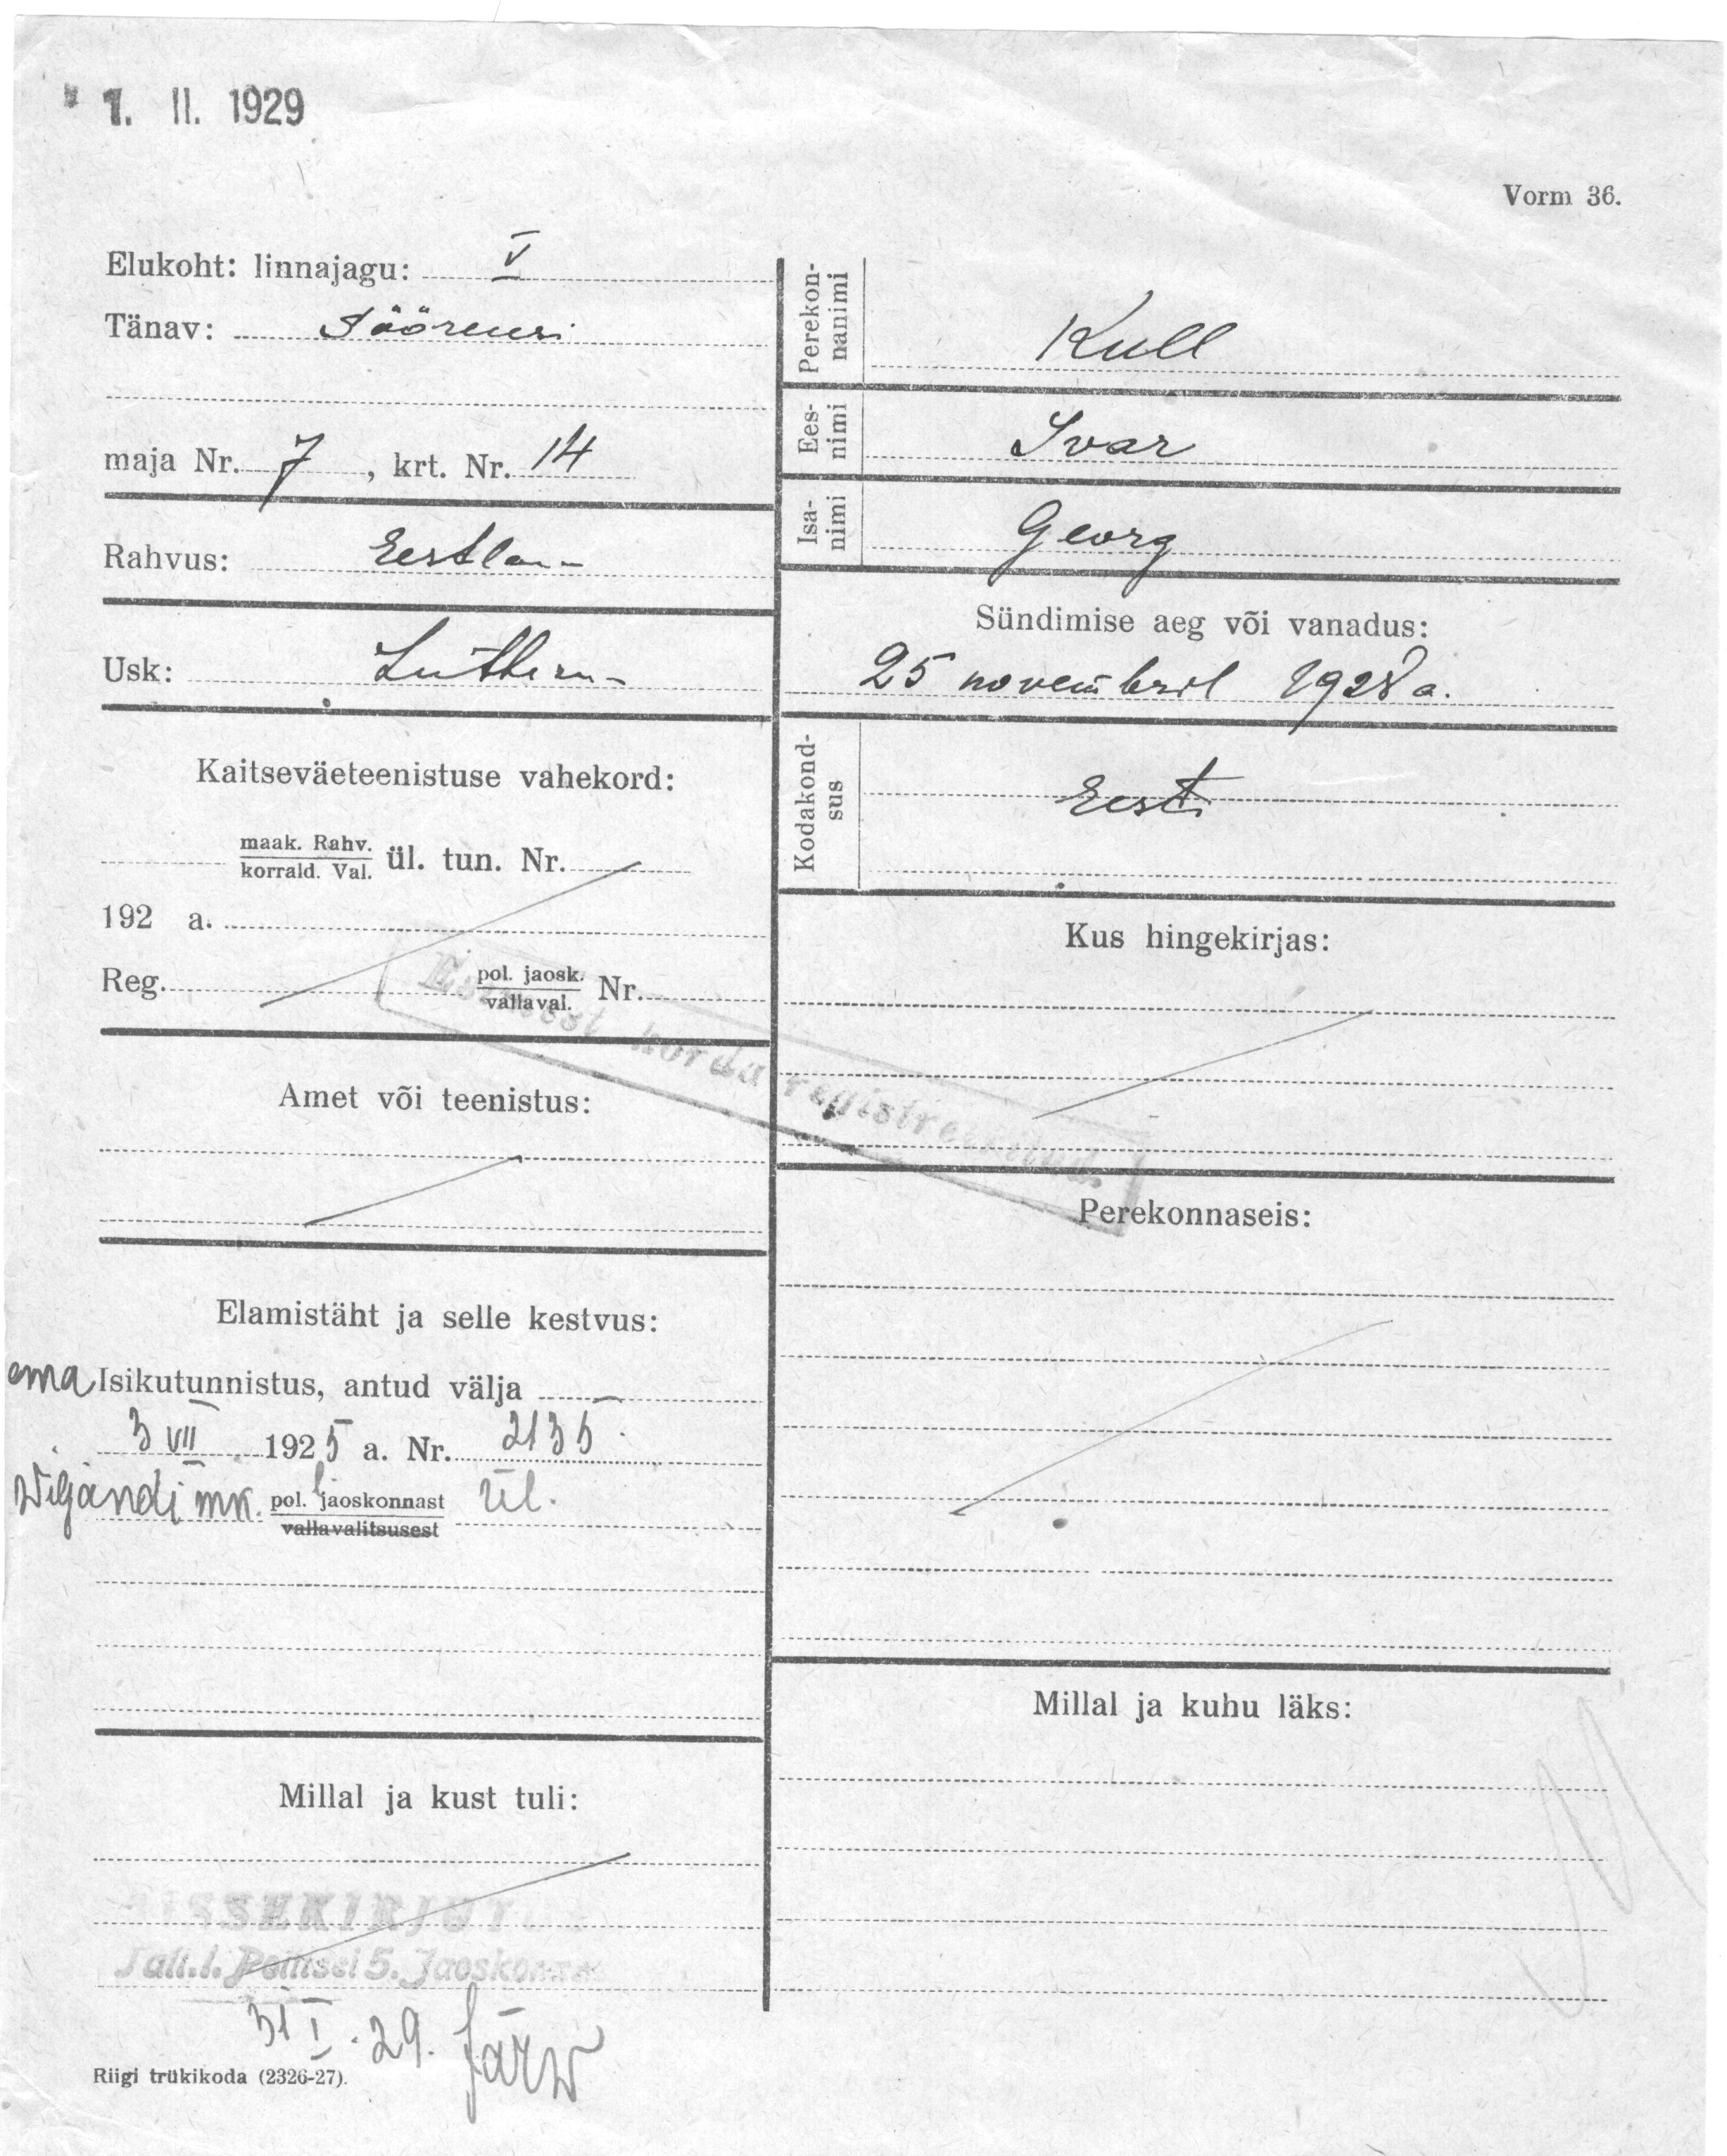 1. II. 1929
Vorm 36.
Elukoht: linnajagu: V
Tänav:
maja Nr. 7, krt. Nr. 14
Rahvus: Eestlan-
Usk: Luthern-
Kaitseväeteenistuse vahekord:
maak. Rahv.
korrald. Val. ül. tun. Nr.
192 a.
Reg. pol. jaosk.
vallaval. Nr.
Esimest korda registreeritud.
Amet või teenistus:
Elamistäht ja selle kestvus:
ema Isikutunnistus, antud välja
3 VII 1925 a. Nr. 2135.
Wiljandi mk. pol. jaoskonnast Ül.
vallavalitsusest
Millal ja kust tuli:
SISSEKIRJUTUD
Tall. l. Politsei 5. Jaoskonnas
31 I. 29. Järw
Riigi trükikoda (2326-27).
Perekon-
nanimi Kull
Ees-
nimi Ivar
Isa-
nimi Georg
Sündimise aeg või vanadus:
25 novembril 1928 a.
Kodakond-
sus Eesti
Kus hingekirjas:
Perekonnaseis:
Millal ja kuhu läks: